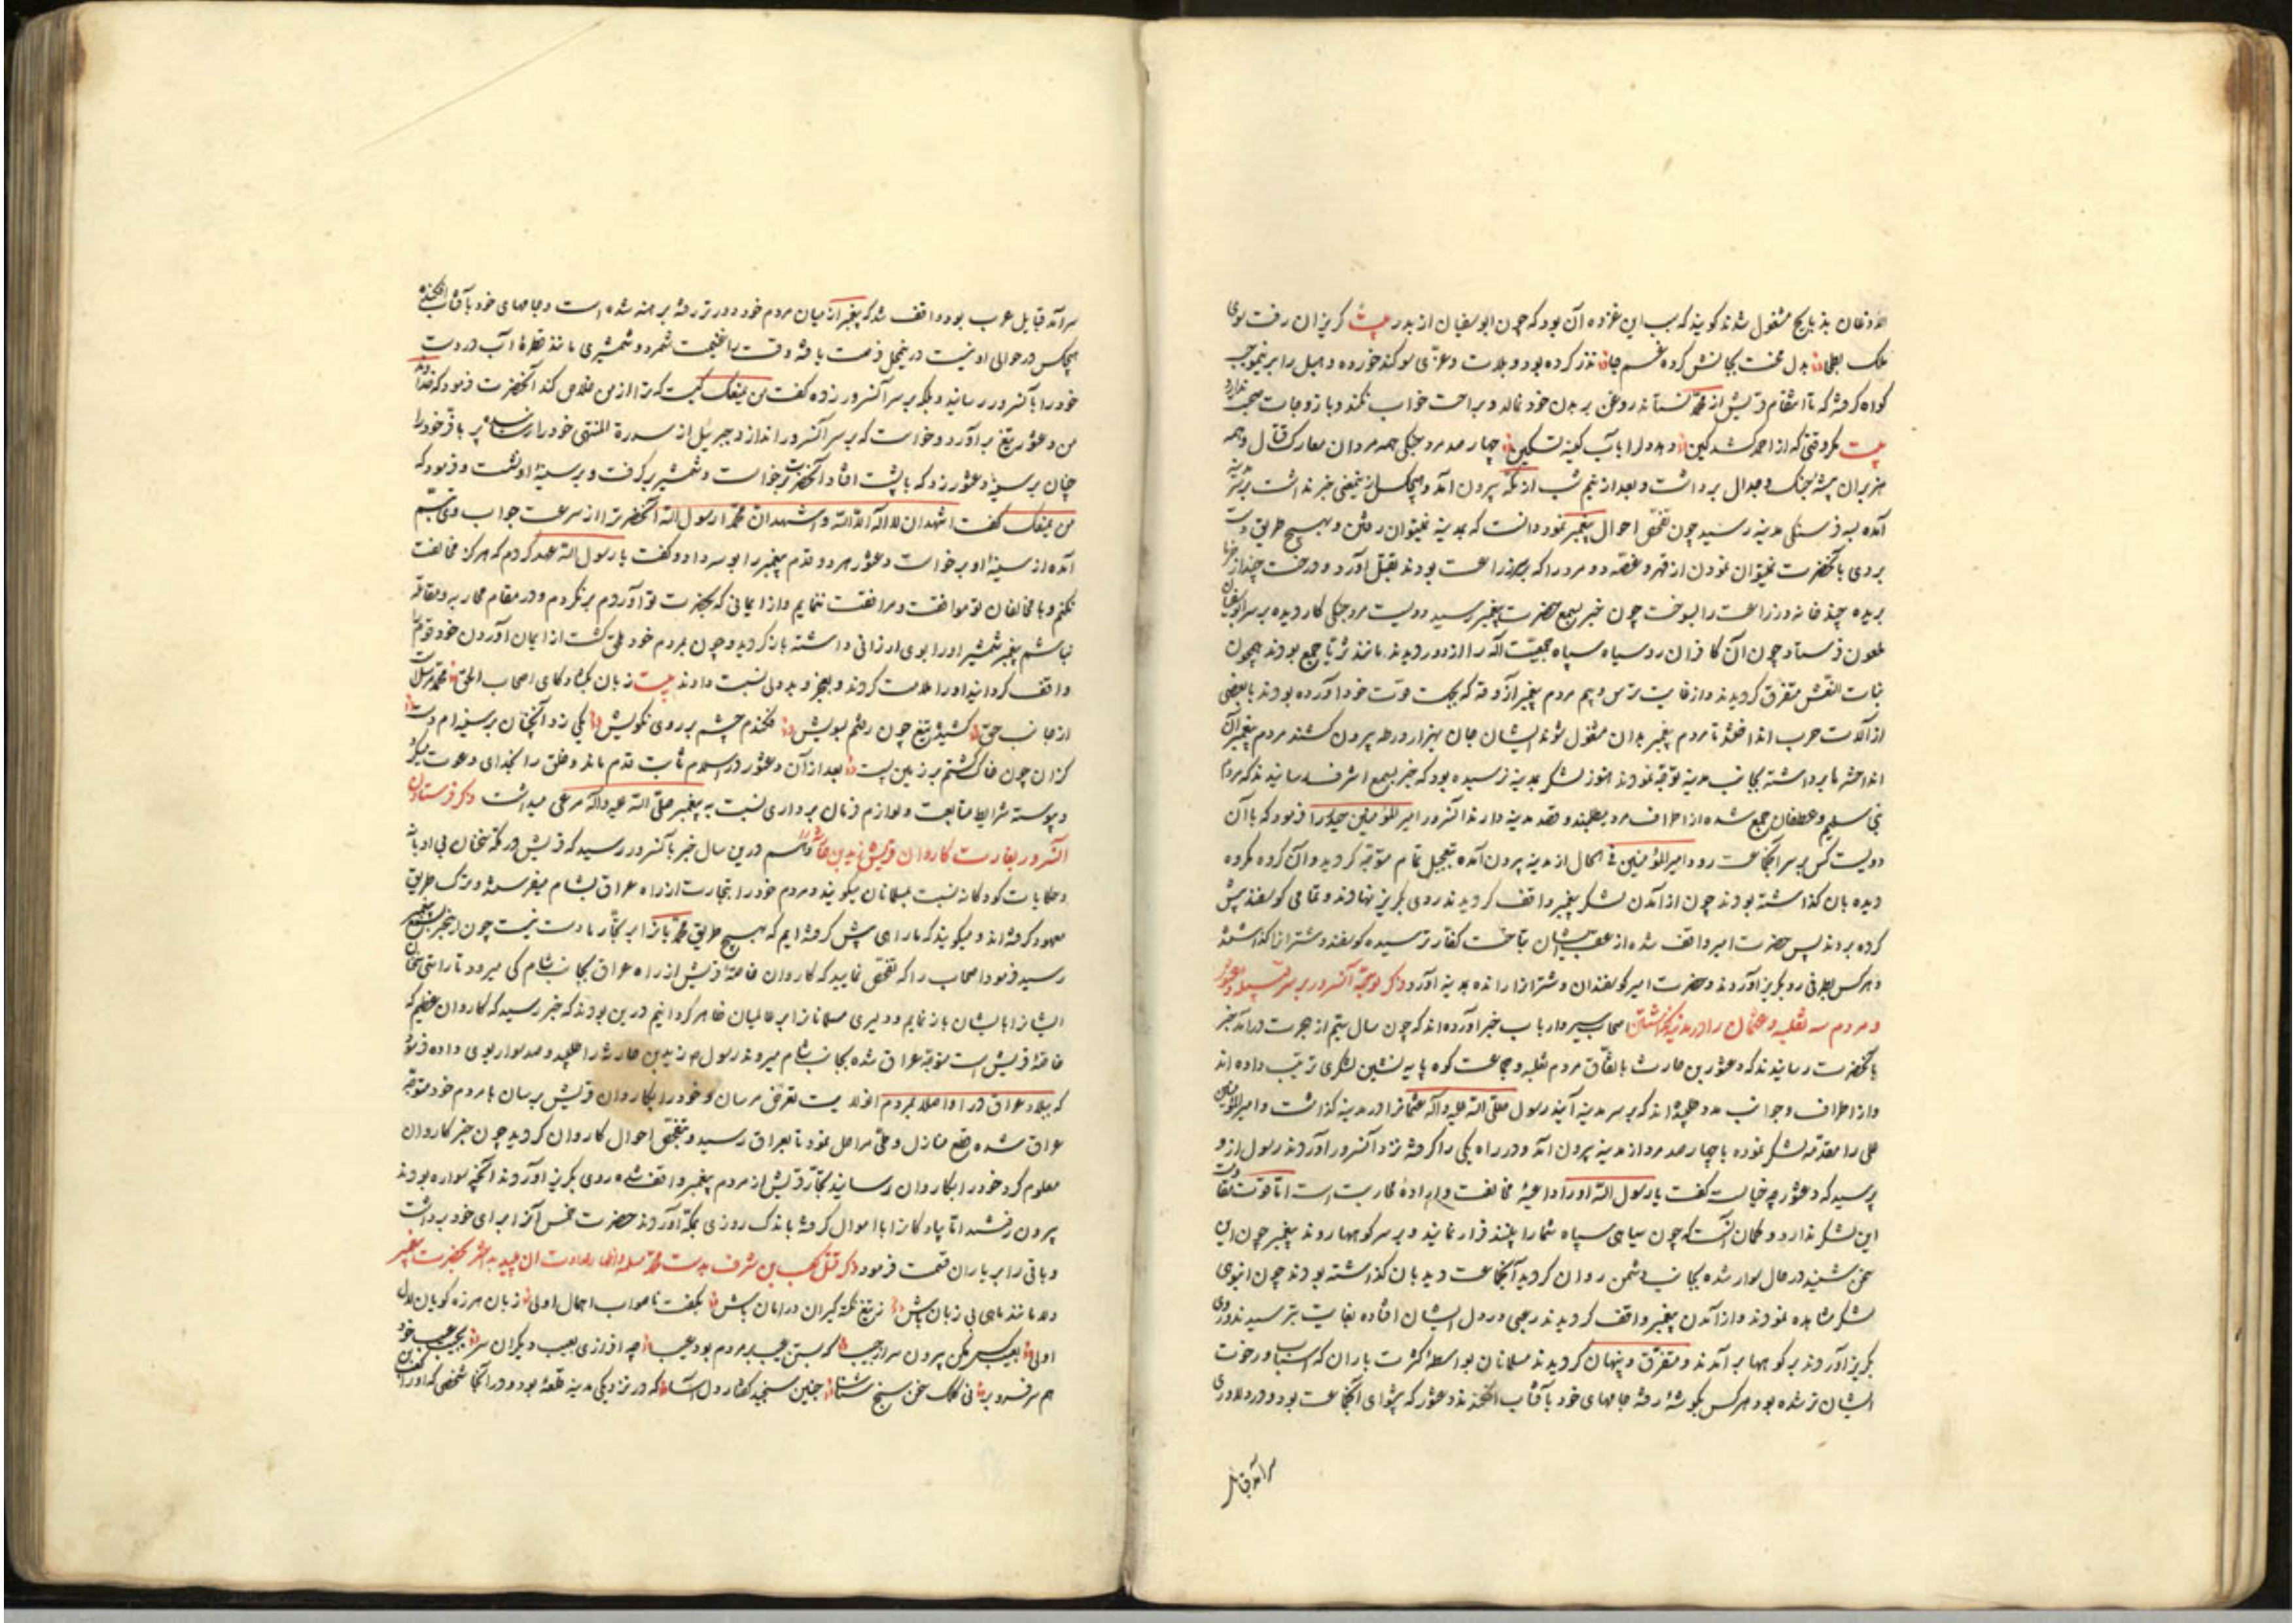 مشغول شدند کویند که سبب این غزوه آن بود که چون ابوسفیان از بدر بیت کریزان رفت سوی
ملک بطحا بدل نذر کرده بود و بلات و عزی سوکند خورده و هبل را
کواه کرفته که تا انتقام قریش از محمد نستاند روغن بر بدن خود نمالد و براحت خواب نکند و با زوجات صحبت ندارد
بیت چهار صد مرد جنکی همه مردان معارک قتال و همه
هزبران بیشهٔ جنک و جدال برداشت و بعد از نیم شب از مکه بیرون آمد و هیچکس از خبر نداشت
آمده به فرسنکی مدینه رسید چون تفحص احوال پیغمبر نمود دانست که بمدینه نمیتوان رفتن و بهیچ طریق
بآنحضرت نمیتوان نمودن از قهر و غصه دو مرد را که بودند بقتل آورد و درخت چند از خرما
بریده چند خانه و زراعت را بسوخت چون خبر بسمع حضرت پیغمبر رسید دویست مرد جنکی کار دیده بر سر ابوسفیان
ملعون فرستاد چون آن کافران روسیاه سپاه را از دور دیدند مانند ثریا جمع بودند همچون
بنات النعش متفرق کردیدند و از غایت ترس و بیم مردم پیغمبر آذوقه که بجهت قوت خود آورده بودند با بعضی
از آلات حرب انداختند تا مردم پیغمبر بدان مشغول شوند ایشان جان بهزار ورطه بیرون کشند مردم پیغمبر آن
انداخته را برداشته بجانب مدینه توجه نمودند هنوز لشکر بمدینه نرسیده بود که خبر بسمع اشرف رسانیدند که مردم
بنی سلیم و غطفان جمع شده از اطراف مدد میطلبند و قصد مدینه دارند آنسرور امیر المؤمنین حیدر را فرمود که با آن
دویست کس بر سر آنجماعت رود امیر المؤمنین فی الحال از مدینه بیرون آمده بتعجیل تمام متوجه کردید و آن کروه مکروه
دیده بان کذاشته بودند چون از آمدن لشکر پیغمبر واقف کردیدند روی بکریز نهادند و تمامی کوسفند پیش
کرده بردند پس حضرت امیر واقف شده از عقب ایشان بتاخت کفار ترسیده کوسفند و شترانرا کذاشته
و هر کس بطرفی رو بکریز آوردند و حضرت امیر کوسفندان و شترانرا رانده بمدینه آورد ذکر توجه آنسرور بر سر
و مردم ثعلبه و عثمان را در مدینه کذاشتن اصحاب سیر و ارباب خبر آورده اند که چون سال سیم از هجرت درآمد خبر
بآنحضرت رسانیدند که دعثور بن حارث باتفاق مردم ثعلبه و جماعت کوه پایه نشین لشکری ترتیب داده اند
و از اطراف و جوانب مدد طلبیده اند که بر سر مدینه آیند رسول صلی الله علیه و آله عثمانرا در مدینه کذاشت و امیر المؤمنین
علی را مقدمهٔ لشکر نموده با چهار صد مرد از مدینه بیرون آمد و در راه یکی را کرفته نزد آنسرور آوردند رسول از و
پرسید که دعثور چه خیالست کفت یا رسول الله او را داعیهٔ مخالفت و ارادهٔ محاربت است اما قوت مقاومت
این لشکر ندارد و کمان آنست که چون سیاهی سپاه شما را بینند فرار نمایند و بر سر کوهها روند پیغمبر چون این
سخن شنید در حال سوار شده بجانب دشمن روان کردید آنجماعت دیدبان کذاشته بودند چون انبوهی
لشکر مشاهده نمودند و از آمدن پیغمبر واقف کردیدند رعبی در دل ایشان افتاده بغایت بترسیدند و روی
بکریز آوردند بر کوهها برآمدند و متفرق و پنهان کردیدند مسلمانان بواسطهٔ کثرت باران که اسباب و رخوت
ایشان تر شده بود هر کس بکوشهٔ رفته جامهای خود بآفتاب افکندند دعثور که پیشوای آنجماعت بود و در دلاوری
سرآمد قبایل
سرآمد قبایل عرب بود واقف شد که پیغمبر از میان مردم خود دورتر رفته برهنه شده است و جامهای خود بآفتاب افکنده
هیچکس در حوالی او نیست در این محل فرصت یافته وقت را غنیمت شمرد و شمشیری مانند قطرهٔ آب در دست
خود را بآنسرور رسانید و بر سر آنسرور زده کفت من یمنعک کیست که ترا از من خلاص کند آنحضرت فرمود که خدا
من دعثور تیغ برآورد و خواست که بر سر آنسرور اندازد جبرئیل از سدرة المنتهی خود را رسانیده پر باقر خود را
چنان بر سینهٔ دعثور زد که با پشت افتاد آنحضرت برخواست و شمشیر برکرفت و بر سینهٔ او نشست و فرمود که
من یمنعک کفت اشهد ان لا اله الا الله و اشهد ان محمدا رسول الله آنحضرت را از سرعت جواب وی تبسم
آمده از سینهٔ او برخواست دعثور هر دو قدم پیغمبر را بوسه داد و کفت یا رسول الله عهد کردم که هرکز مخالفت
نکنم و با مخالفان تو موافقت و مرافقت ننمایم و از ایمانی که بحضرت تو آوردم برنکردم و در مقام محاربه و مقاتله
نباشم پیغمبر شمشیر او را بوی ارزانی داشته باز کردید و چون بمردم خود ملحق کشت از ایمان آوردن خود قوم
واقف کردانید او را ملامت کردند و بعجز و بددلی نسبت دادند بیت زبان بکشاد کای اصحاب
از جانب حق کشیده تیغ چون رفتم بسویش فکندم چشم بر روی نکویش یکی زد آنچنان بر سینه ام دست
کزان چون خاک کشتم بر زمین پست بعد از آن دعثور در اسلام ثابت قدم ماند و خلق را بخدای دعوت میکرد
و پیوسته شرایط متابعت و لوازم فرمان برداری نسبت به پیغمبر صلی الله علیه و آله مرعی میداشت ذکر فرستادن
آنسرور بغارت کاروان قریش زید بن حارثه را و هم درین سال خبر بآنسرور رسید که قریش در مکه سخنان بی ادبانه
و حکایات کودکانه نسبت بمسلمانان میکویند و مردم خود را بتجارت از راه عراق بشام میفرستند و ترک طریق
معهود کرفته اند و میکویند که ما راهی پیش کرفته ایم که بهیچ طریق محمد و یارانرا بر تجار ما دست نیست چون این خبر بسمع پیغمبر
رسید فرمود اصحاب را که تفحص نمایید که کاروان قافلهٔ قریش از راه عراق بجانب شام کی میرود تا راستی سخنان
ایشانرا بایشان باز نمایم و دلیری مسلمانانرا بر عالمیان ظاهر کردانیم درین بودند که خبر رسید که کاروان عظیم که
قافلهٔ قریش است متوجه عراق شده بجانب شام میروند رسول زید بن حارثه را طلبید و صد سوار بوی داده فرمود
که ببلاد عراق در آ و اصلا بمردم آنولایت تعرض مرسان و خود را بکاروان قریش برسان با مردم خود متوجه
عراق شده قطع منازل و طی مراحل نمود تا بعراق رسید و بتفحص احوال کاروان کردید چون خبر کاروان
معلوم کرد خود را بکاروان رسانید تجار قریش از مردم پیغمبر واقف شده روی بکریز آوردند آنچه سواره بودند
بیرون رفتند اما پیادکانرا با اموال کرفته باندک روزی بمکه آوردند حضرت خمس آنرا برای خود برداشت
و باقی را بر یاران قسمت فرمود ذکر قتل کعب بن شرف بدست محمد مسلمه و اظهار عداوت آن پلید بحضرت پیغمبر
دلا مانند ماهی بی زبان باش ز تیغ نکته کیران در امان باش بکفت ناصواب اهمال اولی زبان هرزه کویان لال
اولی بعیب کس مکن بیرون سر از جیب که بستن عیب بر مردم بود عیب چه افرازی بعیب دیکران سر بجیب عیب خود
هم سر فرو بر سخن سنج چنین سنجید کفتار که در نزدیکی مدینه قلعهٔ بود و در آنجا شخصی که او را کعب بن